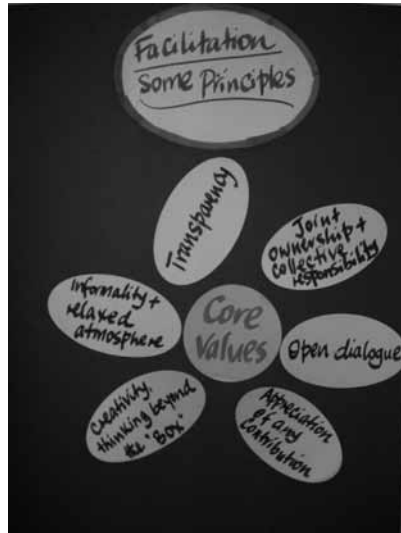 Facilitation
Some Principles
Transparency
Joint
ownership +
collective
responsibility
Informality +
relaxed
atmosphere
Core
Values
Open dialogue
Creativity,
thinking beyond
the "Box"
Appreciation
of any
contribution